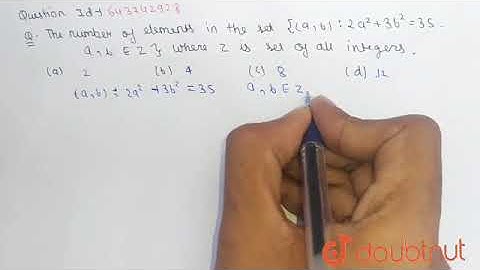 Question Id-1 643742928
Q. The number of elements in the set {(a,b) : 2a²+3b²=35.
a,b ∈ Z}, where Z is set of all integers.
(a) 2 (b) 4 (c) 8 (d) 12
(a,b) : 2a² +3b² = 35 a,b ∈ Z,
doubtnut